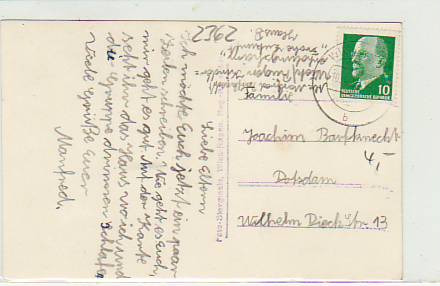 Liebe Eltern
Ich möchte Euch jetzt ein paar
Zeilen schreiben. Wie geht es Euch,
mir geht es gut. Auf der Karte
seht ihr das Haus wo ich und
die Gruppe drinnen schlafen.
Viele Grüße Euer
Manfred.
2562
"Frohe Zukunft"
Haus B.
DEUTSCHE
DEMOKRATISCHE REPUBLIK
10
b
Joachim
4,-
Potsdam
Wilhelm Pieck Str. 13